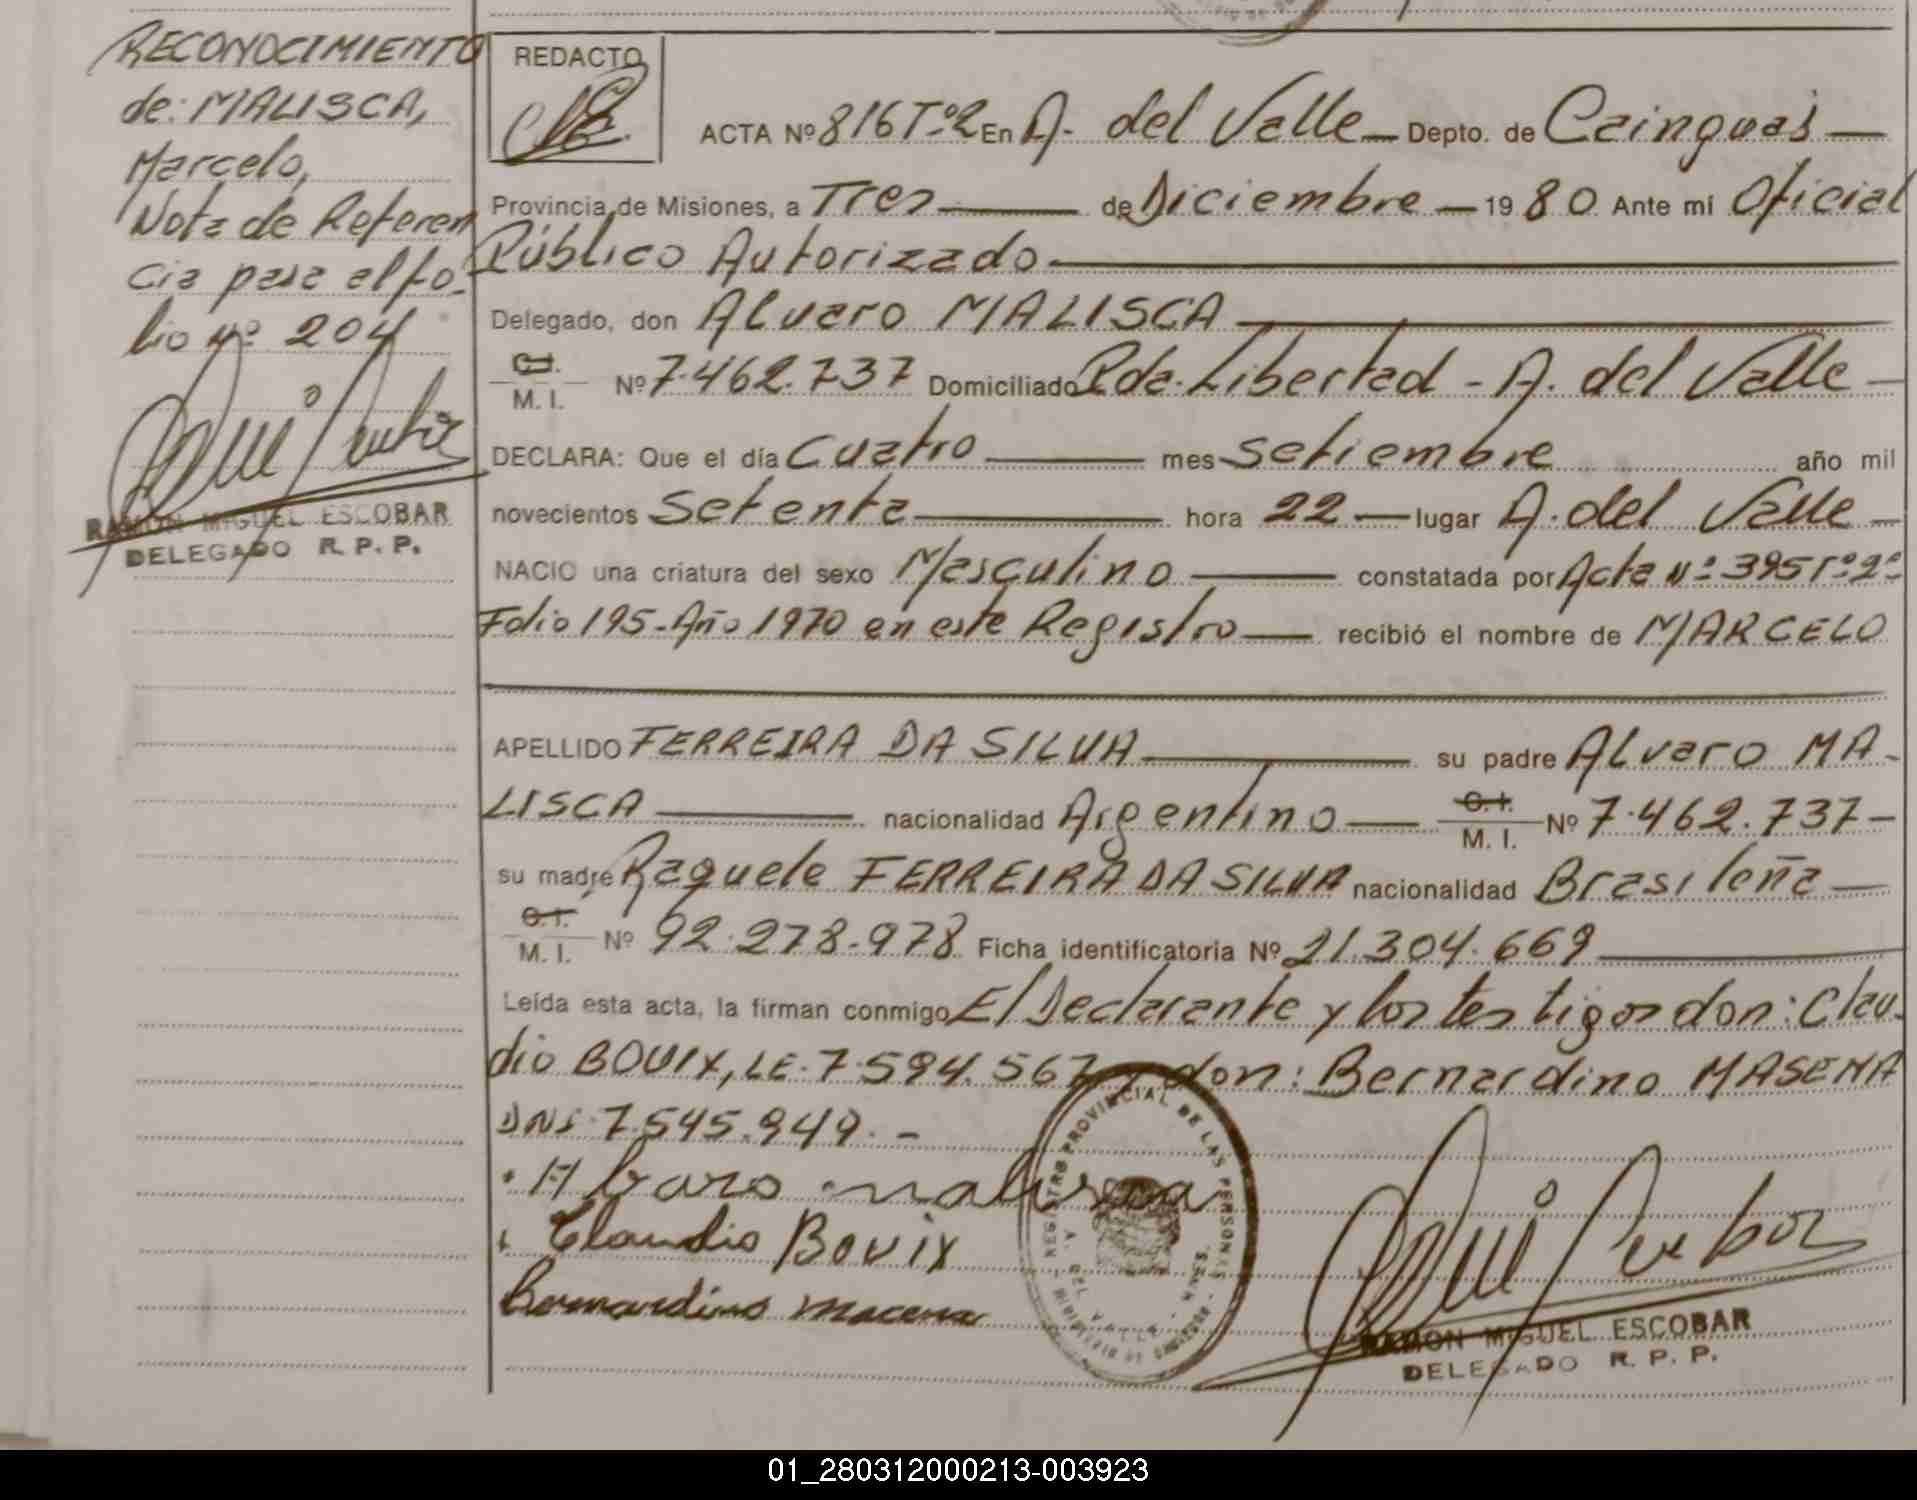 RECONOCIMIENTO
de: MALISCA,
Marcelo,
Nota de Referen
cia pasa al fo-
lio nº 204
RAMON MIGUEL ESCOBAR
DELEGADO R. P. P.
REDACTO
ACTA Nº 816 Tº2 En A. del Valle — Depto. de Cainguás —
Provincia de Misiones, a Tres — de Diciembre — 1980 Ante mi Oficial
Público Autorizado —
Delegado, don Alvaro MALISCA —
C.I. M. I. Nº 7.462.737 Domiciliado Pda. Libertad - A. del Valle —
DECLARA: Que el día Cuatro — mes Setiembre año mil
novecientos Setenta — hora 22 — lugar A. del Valle —
NACIO una criatura del sexo Masculino — constatada por Acta Nº 395 Tº 2º
Folio 195 - Año 1970 en este Registro — recibió el nombre de MARCELO
APELLIDO FERREIRA DA SILVA — su padre Alvaro MA-
LISCA — nacionalidad Argentino — C.I. M. I. Nº 7.462.737 -
su madre Raquele FERREIRA DA SILVA nacionalidad Brasileña —
C.I. M. I. Nº 92.278.978 Ficha identificatoria Nº 21.304.669 —
Leída esta acta, la firman conmigo El Declarante y los testigos don: Clau-
dio BOUIX, LE. 7.594.567 y don: Bernardino MASENA
DNI. 7.545.949. -
Albaro malisca
Claudio Bouix
Bernardino macena
REGISTRO PROVINCIAL DE LAS PERSONAS
A. DEL VALLE
RAMON MIGUEL ESCOBAR
DELEGADO R. P. P.
01_280312000213-003923